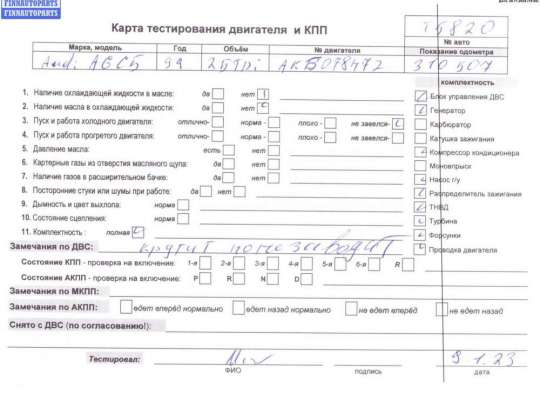 FINNAUTOPARTS
FINNAUTOPARTS
Карта тестирования двигателя и КПП
15820
№ авто
Марка, модель Год Объём № двигателя Показание одометра
Audi A6C5 99 2.5TDi AKE 310 507
комплектность
1. Наличие охлаждающей жидкости в масле: да нет
Блок управления ДВС
2. Наличие масла в охлаждающей жидкости: да нет
Генератор
3. Пуск и работа холодного двигателя: отлично- норма - плохо - не завелся-
Карбюратор
4. Пуск и работа прогретого двигателя: отлично- норма - плохо - не завелся-
Катушка зажигания
5. Давление масла: есть нет
Компрессор кондиционера
6. Картерные газы из отверстия масляного щупа: да нет
Моновпрыск
7. Наличие газов в расширительном бачке: да нет
Насос г/у
8. Посторонние стуки или шумы при работе: да нет
Распределитель зажигания
9. Дымность и цвет выхлопа: норма
ТНВД
10. Состояние сцепления: норма
Турбина
11. Комплектность : полная
Форсунки
Замечания по ДВС: крутит но не заводит
Проводка двигателя
Состояние КПП - проверка на включение: 1-я 2-я 3-я 4-я 5-я 6-я R
Состояние АКПП - проверка на включение: P R N D
Замечания по МКПП:
Замечания по АКПП: едет вперёд нормально едет назад нормально не едет вперёд не едет назад
Снято с ДВС (по согласованию!):
Тестировал: 9 1.23
ФИО подпись дата